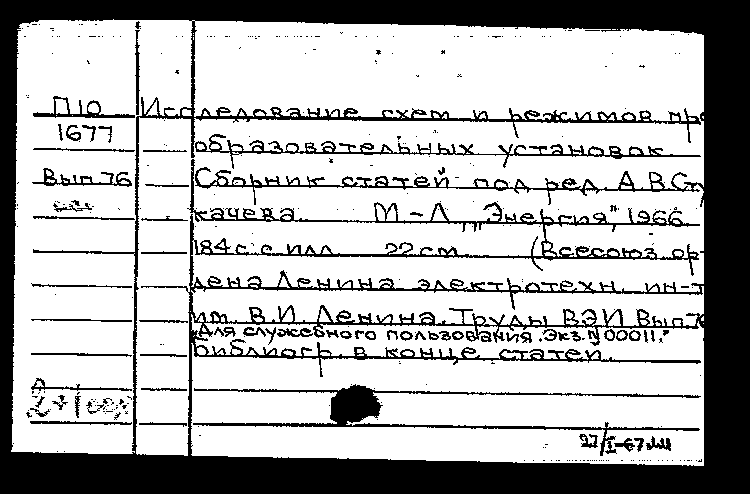 П10 Исследование схем и режимов пре
1677
образовательных установок.
Вып.76 Сборник статей под ред. А.В.Сту
качева. М-Л, „Энергия", 1966
184с. с илл. 22см. (Всесоюз. ор-
дена Ленина электротехн. ин-т
им. В.И. Ленина. Труды ВЭИ Вып.76
„Для служебного пользования. Экз.N 00011."
Библиогр. в конце статей.
2+1
27/I-67